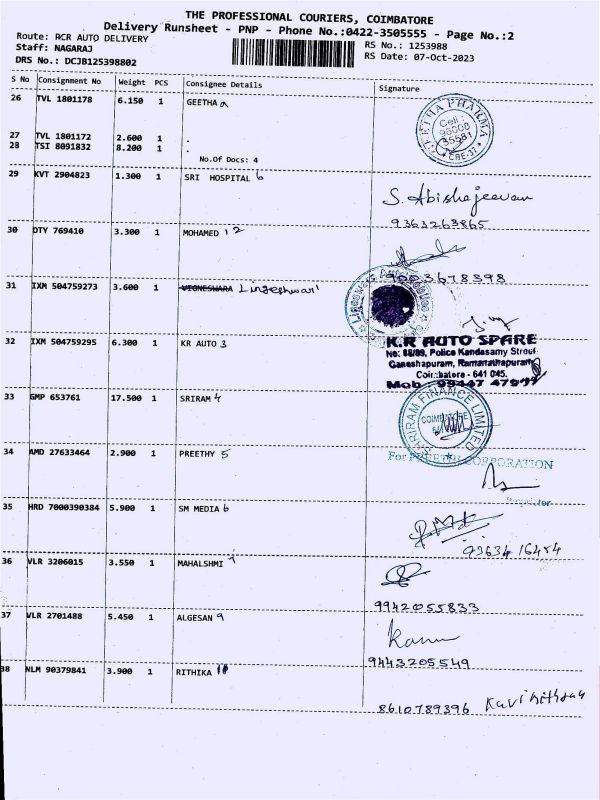 THE PROFESSIONAL COURIERS, COIMBATORE
Delivery Runsheet - PNP - Phone No.:0422-3505555 - Page No.:2
Route: RCR AUTO DELIVERY
RS No.: 1253988
Staff: NAGARAJ
RS Date: 07-Oct-2023
DRS No.: DCJB125398802
S No Consignment No Weight PCS Consignee Details Signature
26 TVL 1801178 6.150 1 GEETHA
GEETHA PHARMA
Cell :
96008
35581
CBE-37
27 TVL 1801172 2.600 1 .
28 TSI 8091832 8.200 1 .
No.Of Docs: 4
29 KVT 2904823 1.300 1 SRI HOSPITAL 6
S. Abishajeevan
9363263865
30 DTY 769410 3.300 1 MOHAMED 1 2
31 IXM 504759273 3.600 1 VIGNESWARA Lingeshwari
32 IXM 504759295 6.300 1 KR AUTO 3
K.R AUTO SPARE
No: 88/89, Police Kandasamy Street
Ganeshapuram, Ramanathapuram
Coimbatore - 641 045.
Mob : 99447 47999
33 GMP 653761 17.500 1 SRIRAM 4
SHRIRAM FINANCE LIMITED
COIMBATORE
34 AMD 27633464 2.900 1 PREETHY 5
For PREETHI CORPORATION
Proprietor
35 HRD 7000390384 5.900 1 SM MEDIA 6
36 VLR 3206015 3.550 1 MAHALSHMI 7
9942055833
37 VLR 2701488 5.450 1 ALGESAN 9
9443205549
38 NLM 90379841 3.900 1 RITHIKA
8610789396